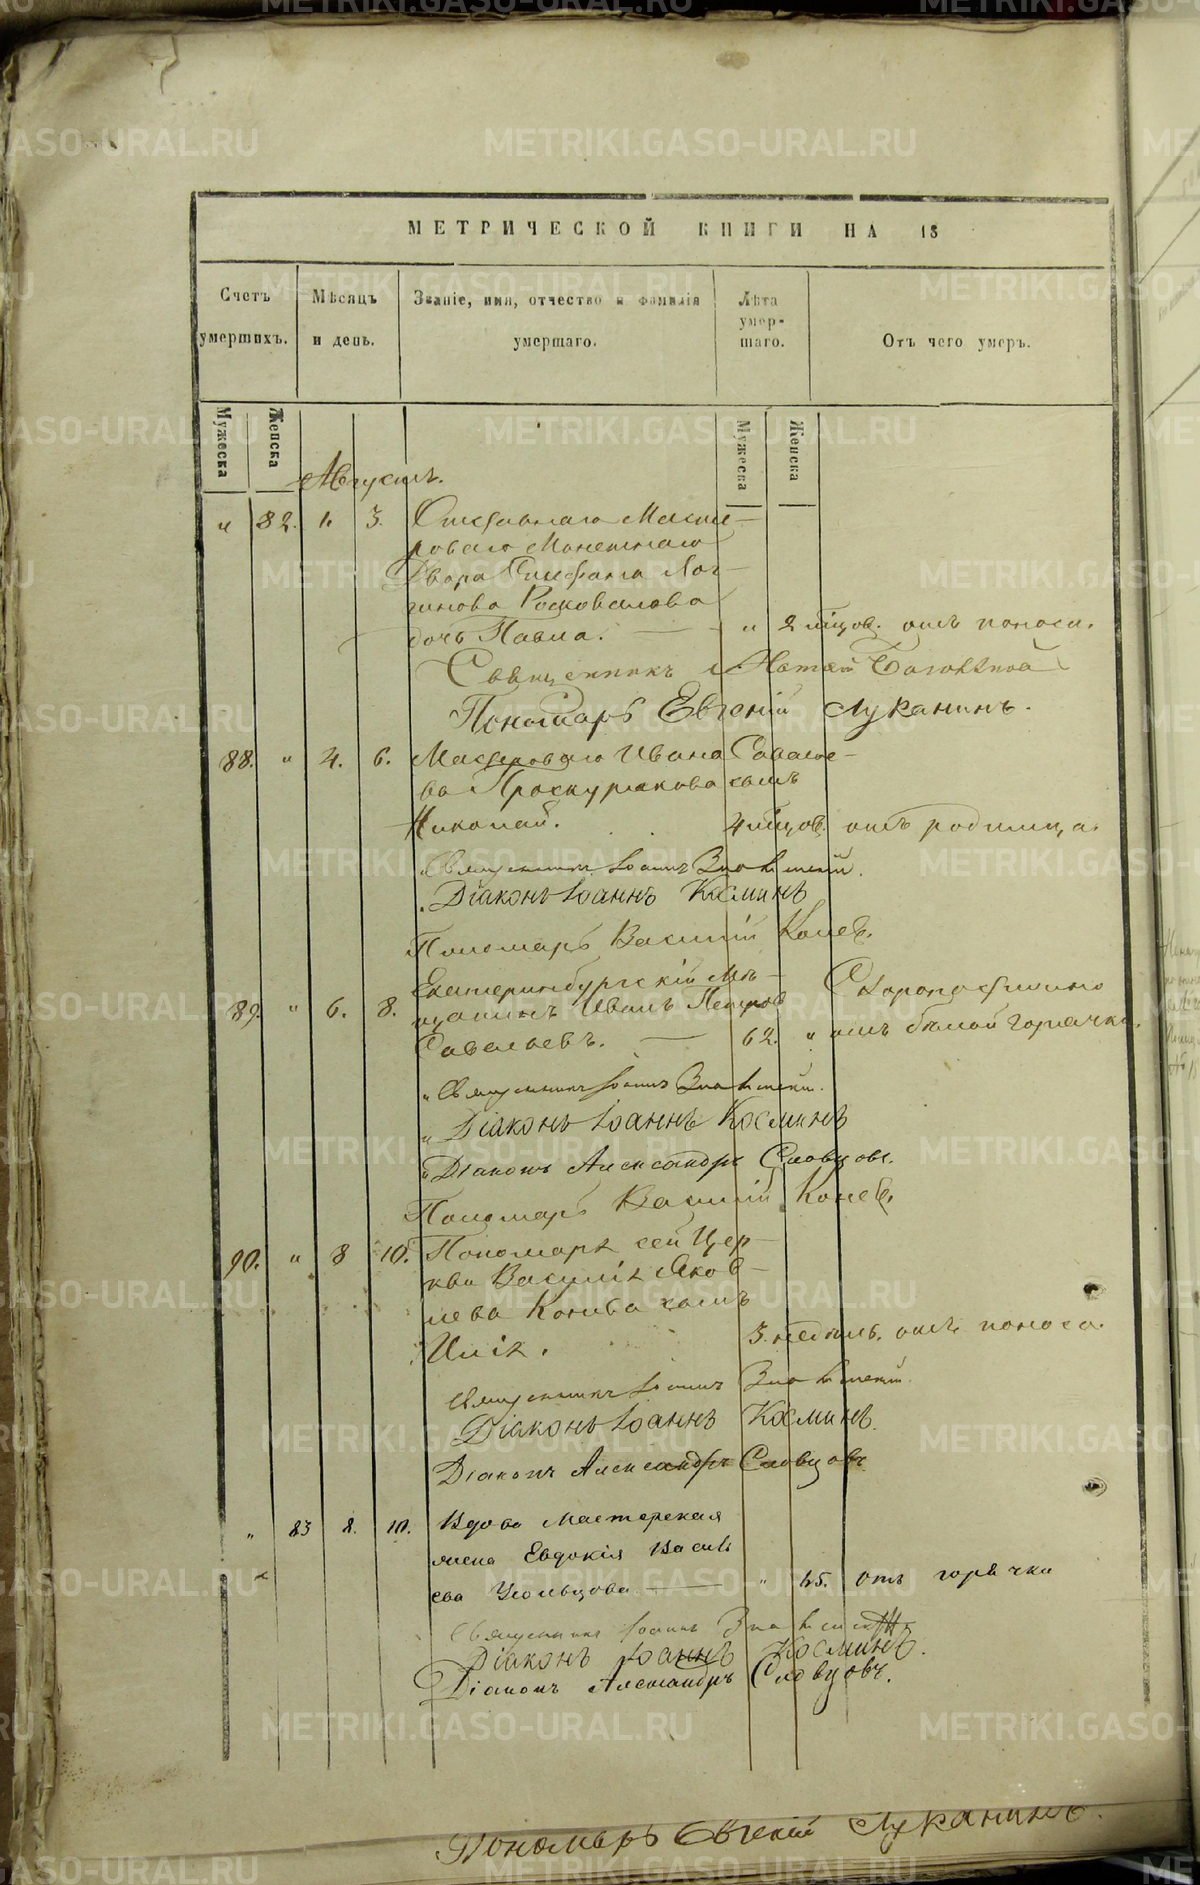 МЕТРИЧЕСКОЙ КНИГИ НА 18
Счетъ умершихъ.
Мѣсяцъ и день.
Званіе, имя, отчество и фамилія умершаго.
Лѣта умер-
шаго.
Отъ чего умеръ.
Мужеска
Женска
Мужеска
Женска
Августъ.
" 82. 1. 3. Отставнаго Масте-
роваго Монетнаго
Двора Стефана Лог-
гинова
дочь Павла. — " 2 мѣцов. отъ поноса.
Священникъ
Пономарь Евгений Луканинъ.
88. " 4. 6. Мастероваго Ивана Савастее-
ва Проскурякова сынъ
Николай. 4 мѣцов. отъ родимца.
Священникъ Іоаннъ Знаменскій.
Діаконъ Іоаннъ Косминъ
Пономарь Василій Конев.
89. " 6. 8. Екатеринбургскій Мѣ-
щанинъ Иванъ Петров
Савельевъ. — 62. " Скоропостижно
отъ бѣлой горячки.
" Священникъ Іоаннъ Знаменскій.
" Діаконъ Іоаннъ Косминъ
" Діаконъ Александръ Словцовъ.
Пономарь Василій Конев.
90. " 8 10. Пономаря сей Цер-
кви Василія Яков-
лева Конева сынъ
Илія. 3. недѣль. отъ поноса.
Священникъ Іоаннъ Знаменскій.
Діаконъ Іоаннъ Косминъ.
Діаконъ Александръ Словцовъ
" 83 8. 10. Вдова Мастерская
жена Евдокія Василь
ева — " 45. отъ горячки
Священникъ Іоаннъ Знаменскій
Діаконъ Іоаннъ Косминъ.
Діаконъ Александръ Словцовъ.
Пономарь Евгеній Луканинъ.
METRIKI.GASO-URAL.RU